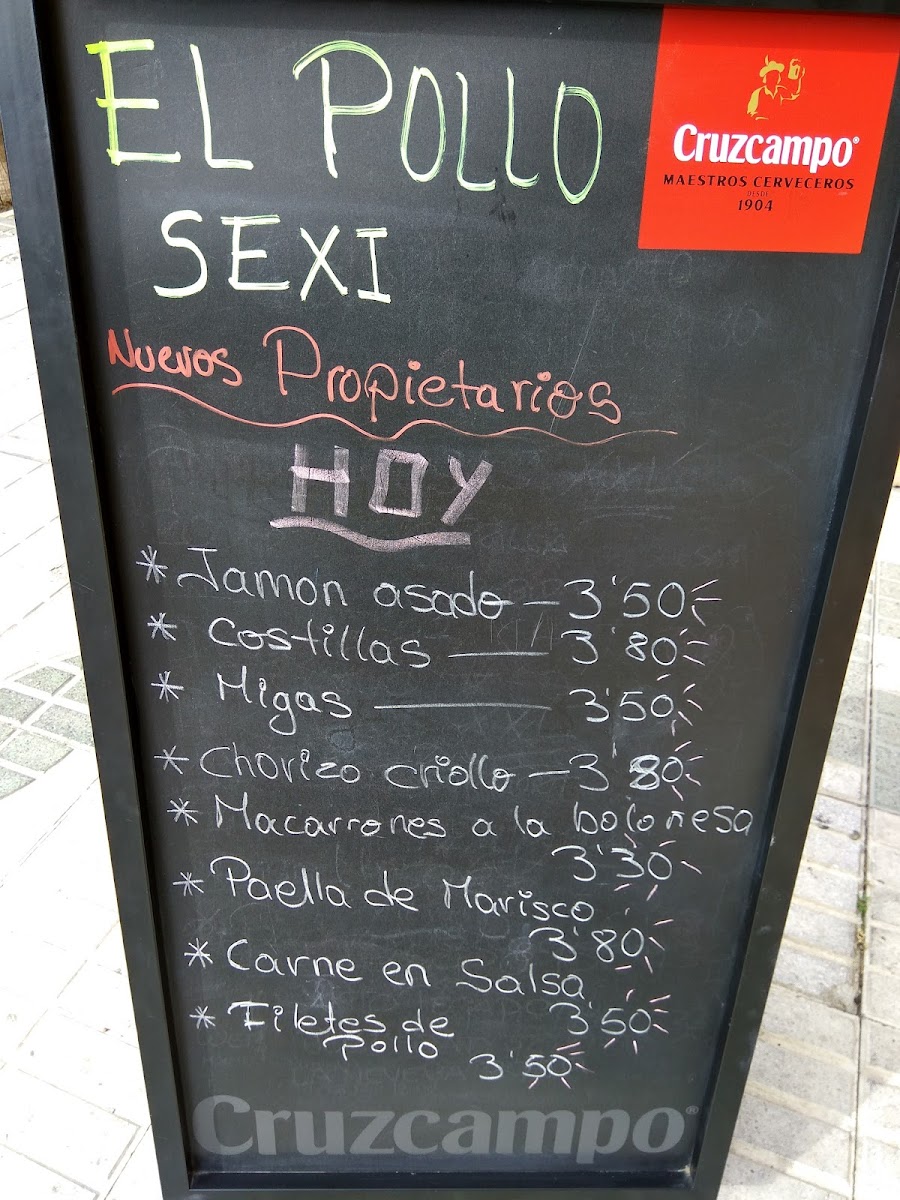 EL POLLO
SEXI
Cruzcampo®
MAESTROS CERVECEROS
DESDE
1904
Nuevos Propietarios
HOY
* Jamon asado — 3'50
* Costillas — 3'80
* Migas — 3'50
* Chorizo criollo — 3'80
* Macarrones a la bolonesa
3'30
* Paella de Marisco
3'80
* Carne en Salsa
3'50
* Filetes de
Pollo
3'50
Cruzcampo®